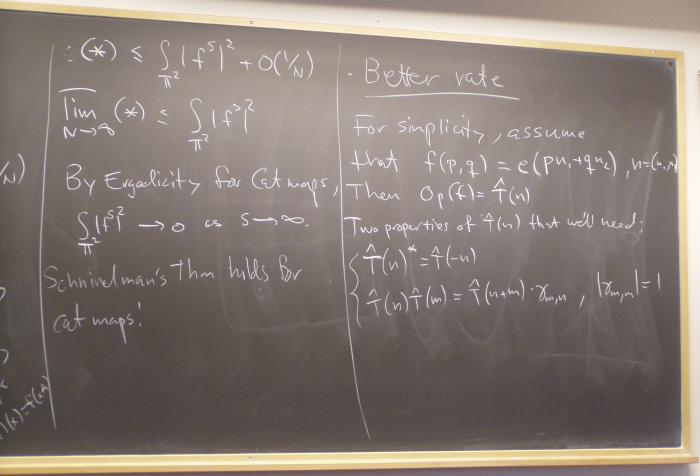 ∴ (*) ≤ ∫_{𝕋²} |f^s|² + O(1/N)
\overline{lim}_{N→∞} (*) ≤ ∫_{𝕋²} |f^s|²
By Ergodicity for Cat maps,
∫_{𝕋²} |f^s|² → 0 as s → ∞.
Schnirelman's Thm holds for
cat maps!
/N)
)(x)=f(x+)
· Better rate
For simplicity, assume
that f(p,q) = e(pn₁+qn₂), n=(n₁,n₂)
Then Op(f) = T̂(n)
Two properties of T̂(n) that we'll need:
{ T̂(n)* = T̂(-n)
{ T̂(n)T̂(m) = T̂(n+m)·γ_{m,n}, |γ_{m,n}| = 1